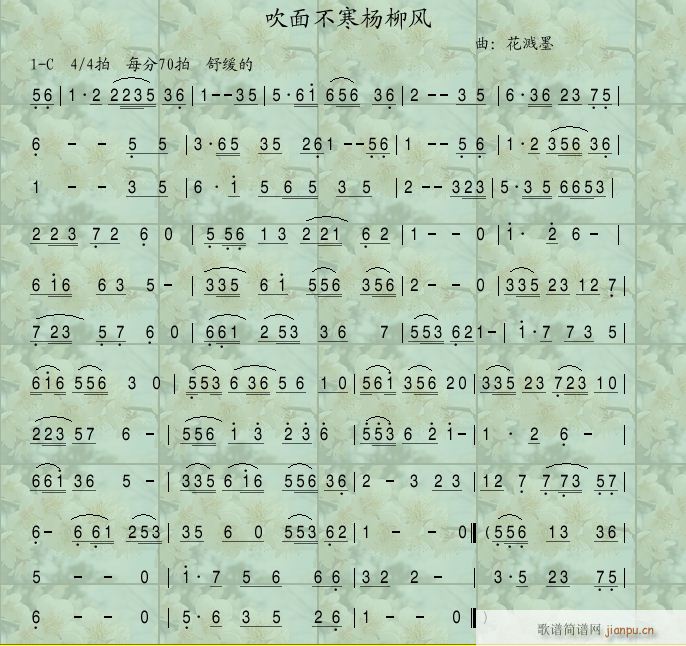 吹面不寒杨柳风
曲: 花溅墨
1-C 4/4拍 每分70拍 舒缓的
56|1·2 2235 36|1--35|5·61 656 36|2--3 5|6·36 23 75|
6 - - 5 5 |3·65 35 261--56|1 --56|1·2 356 36|
1 - - 3 5 |6·1 5 6 5 3 5 |2--323|5·3 5 6653|
2 2 3 7 2 6 0 |5 56 1 3 2 21 6 2|1--0|1· 2 6- |
6 16 6 3 5- |335 6 1 556 356|2--0|335 23 12 7|
7 23 5 7 6 0 |661 2 53 3 6 7 |553 621-|1·7 7 3 5|
616 556 3 0 |553 6 36 5 6 1 0|561 356 20|335 23 723 10|
223 57 6 - |556 1 3 2 3 6 |553 6 2 1-|1 · 2 6 - |
661 36 5 - |335 6 16 556 36|2 - 3 2 3|12 7 7 73 57|
6- 6 61 253|35 6 0 553 62|1 - - 0|(556 13 36|
5 - - 0 |1·7 5 6 6 6|32 2- |3·5 23 75|
6 - - 0 |5·6 3 5 2 6|1 - - 0|)
歌谱简谱网 jianpu.cn